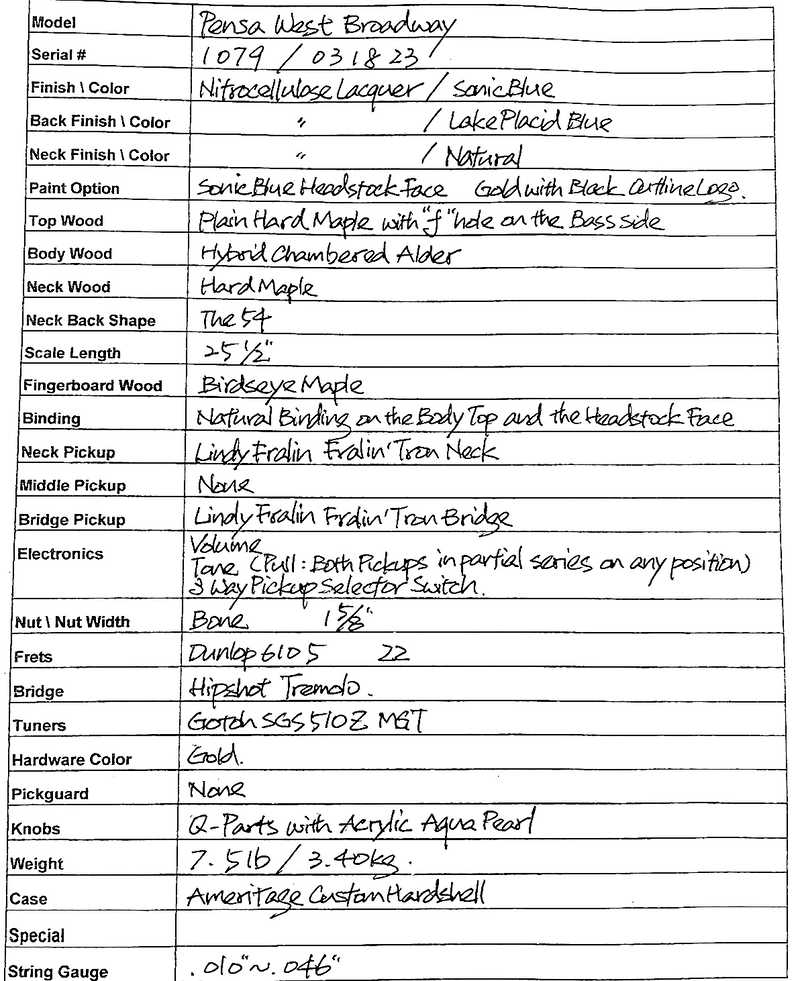 Model Pensa West Broadway
Serial # 1079 / 031823
Finish \ Color Nitrocellulose Lacquer / Sonic Blue
Back Finish \ Color " / Lake Placid Blue
Neck Finish \ Color " / Natural
Paint Option Sonic Blue Headstock Face Gold with Black Outline Logo.
Top Wood Plain Hard Maple with "f" hole on the Bass Side
Body Wood Hybrid Chambered Alder
Neck Wood Hard Maple
Neck Back Shape The 54
Scale Length 25 1/2"
Fingerboard Wood Birdseye Maple
Binding Natural Binding on the Body Top and the Headstock Face
Neck Pickup Lindy Fralin Fralin'Tron Neck
Middle Pickup None
Bridge Pickup Lindy Fralin Fralin'Tron Bridge
Electronics Volume
Tone (Pull : Both Pickups in partial series on any position)
3 Way Pickup Selector Switch.
Nut \ Nut Width Bone 1 5/8"
Frets Dunlop 6105 22
Bridge Hipshot Tremolo.
Tuners Gotoh SGS510Z MGT
Hardware Color Gold.
Pickguard None
Knobs Q-Parts with Acrylic Aqua Pearl
Weight 7.5lb / 3.40kg.
Case Ameritage Custom Hardshell
Special
String Gauge .010"~.046"